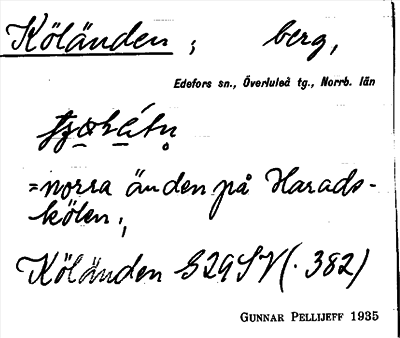 Köländen ; berg,
Edefors sn., Överluleå tg., Norrb. län
=norra änden på Harads-
kölen;
Köländen G29SV(. 382)
GUNNAR PELLIJEFF 1935